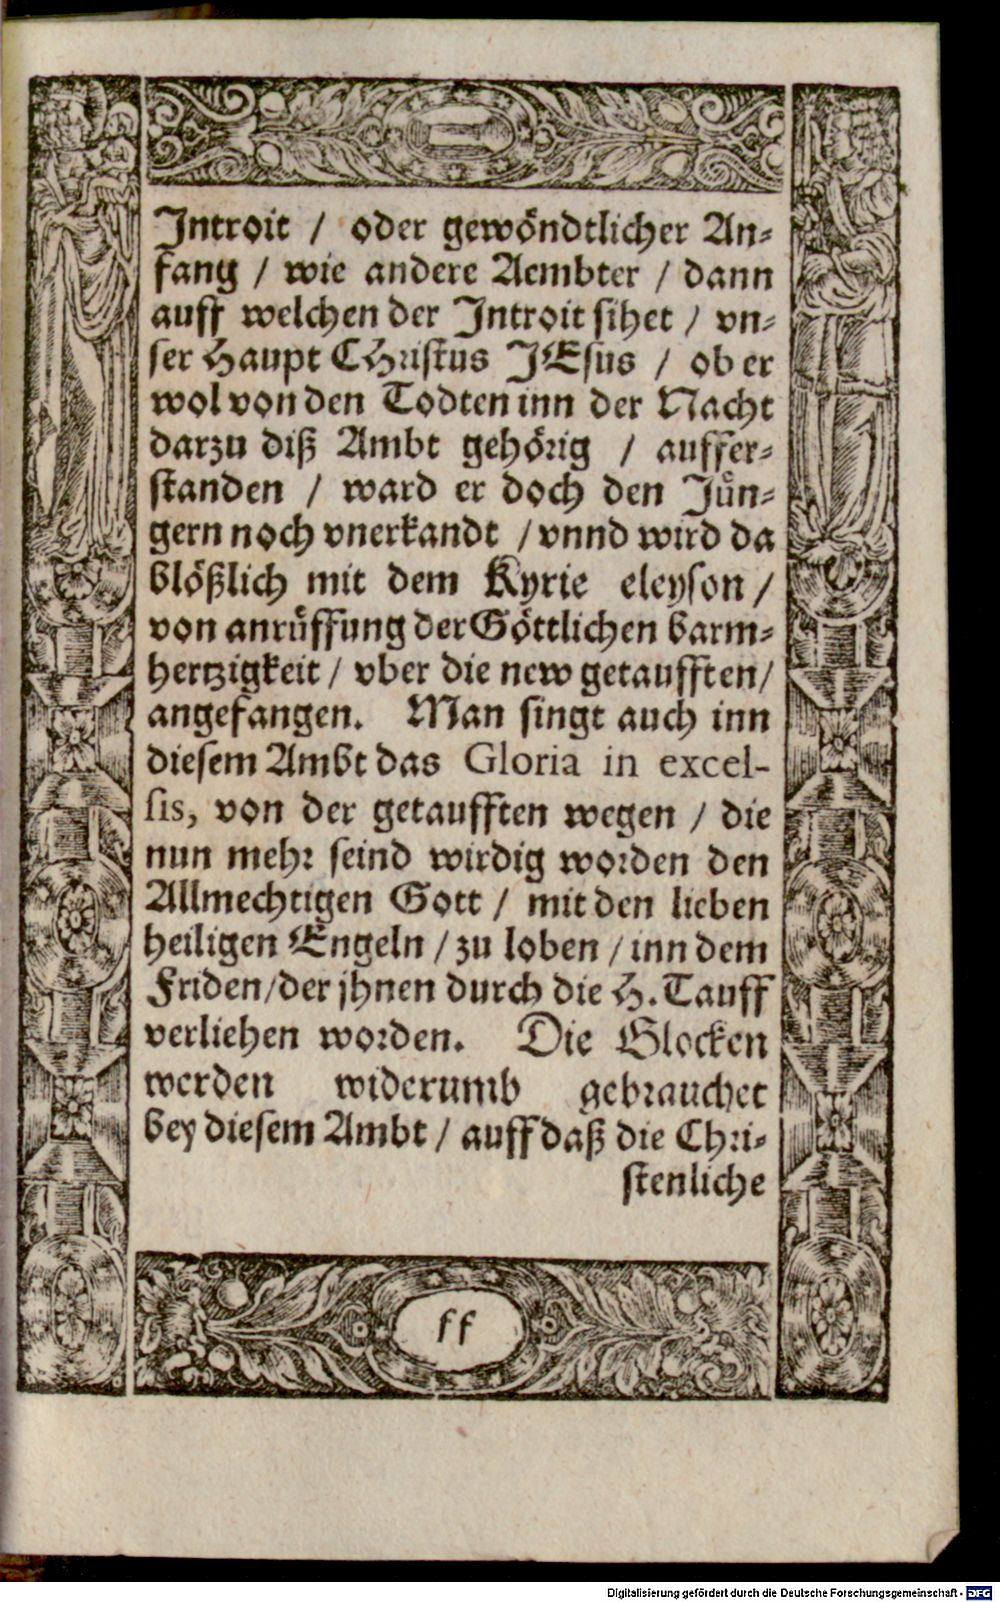 Introit / oder gewöndtlicher An-
fang / wie andere Aembter / dann
auff welchen der Introit sihet / vn-
ser Haupt CHristus JEsus / ob er
wol von den Todten inn der Nacht
darzu diß Ambt gehörig / auffer-
standen / ward er doch den Jün-
gern noch vnerkandt / vnnd wird da
blößlich mit dem Kyrie eleyson /
von anrüffung der Göttlichen barm-
hertzigkeit / vber die new getaufften /
angefangen. Man singt auch inn
diesem Ambt das Gloria in excel-
sis, von der getaufften wegen / die
nun mehr seind wirdig worden den
Allmechtigen Gott / mit den lieben
heiligen Engeln / zu loben / inn dem
Friden / der jhnen durch die H. Tauff
verliehen worden. Die Glocken
werden widerumb gebrauchet
bey diesem Ambt / auff daß die Chri-
stenliche
ff
Digitalisierung gefördert durch die Deutsche Forschungsgemeinschaft - DFG